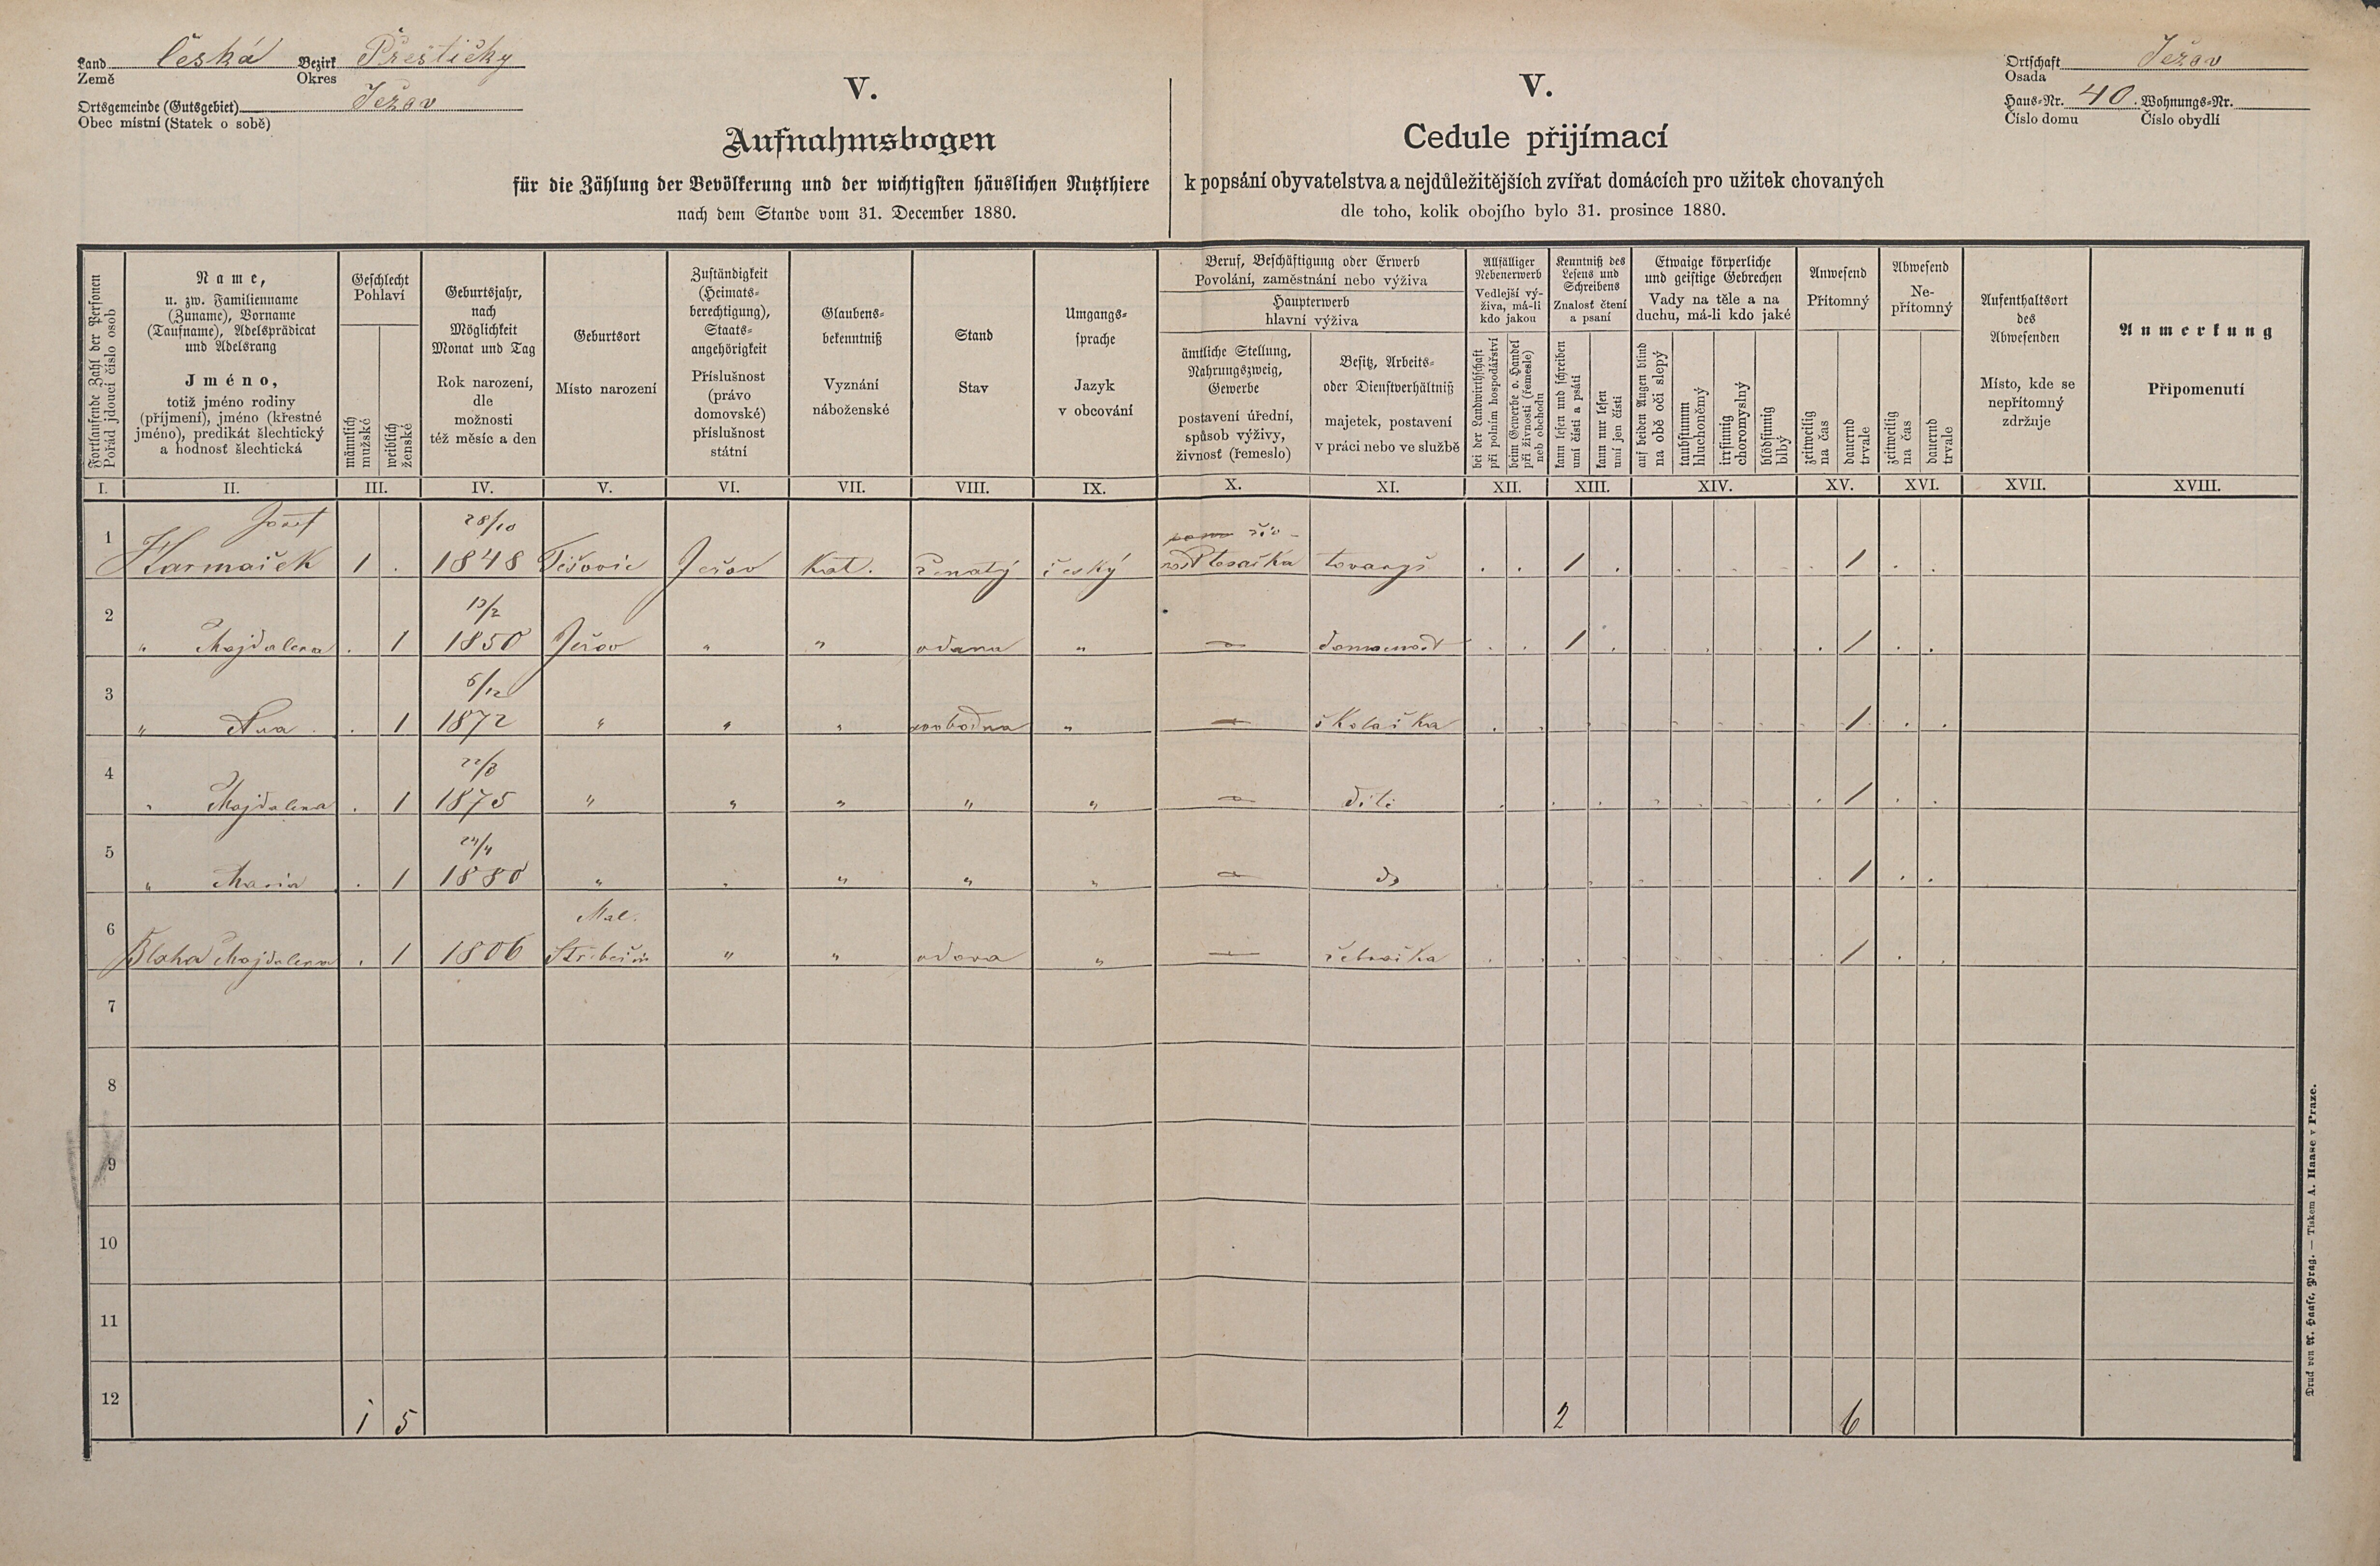 Land Česká Bezirk Přeštičky
Země Okres
Ortsgemeinde (Gutsgebiet) Ježov
Obec místní (Statek o sobě)
V.
Aufnahmsbogen
für die Zählung der Bevölkerung und der wichtigsten häuslichen Nutzthiere
nach dem Stande vom 31. December 1880.
V.
Cedule přijímací
k popsání obyvatelstva a nejdůležitějších zvířat domácích pro užitek chovaných
dle toho, kolik obojího bylo 31. prosince 1880.
Ortschaft Ježov
Osada
Haus-Nr. 40. Wohnungs-Nr.
Číslo domu Číslo obydlí
Fortlaufende Zahl der Personen
Pořád jdoucí číslo osob
Name,
u. zw. Familienname
(Zuname), Vorname
(Taufname), Adelsprädicat
und Adelsrang
Jméno,
totiž jméno rodiny
(příjmení), jméno (křestné
jméno), predikát šlechtický
a hodnost šlechtická
Geschlecht
Pohlaví
männlich
mužské
weiblich
ženské
Geburtsjahr,
nach
Möglichkeit
Monat und Tag
Rok narození,
dle
možnosti
též měsíc a den
Geburtsort
Místo narození
Zuständigkeit
(Heimats-
berechtigung),
Staats-
angehörigkeit
Příslušnost
(právo
domovské)
příslušnost
státní
Glaubens-
bekenntniß
Vyznání
náboženské
Stand
Stav
Umgangs-
sprache
Jazyk
v obcování
Beruf, Beschäftigung oder Erwerb
Povolání, zaměstnání nebo výživa
Haupterwerb
hlavní výživa
ämtliche Stellung,
Nahrungszweig,
Gewerbe
postavení úřední,
spůsob výživy,
živnost (řemeslo)
Besitz, Arbeits-
oder Dienstverhältniß
majetek, postavení
v práci nebo ve službě
Allfälliger
Nebenerwerb
Vedlejší vý-
živa, má-li
kdo jakou
bei der Landwirthschaft
při polním hospodářství
beim Gewerbe o. Handel
při živnosti (řemesle)
neb obchodu
Kenntniß des
Lesens und
Schreibens
Znalost čtení
a psaní
kann lesen und schreiben
umí čísti a psáti
kann nur lesen
umí jen čísti
Etwaige körperliche
und geistige Gebrechen
Vady na těle a na
duchu, má-li kdo jaké
auf beiden Augen blind
na obě oči slepý
taubstumm
hluchoněmý
irrsinnig
choromyslný
blödsinnig
blbý
Anwesend
Přítomný
zeitweilig
na čas
dauernd
trvale
Abwesend
Ne-
přítomný
zeitweilig
na čas
dauernd
trvale
Aufenthaltsort
des
Abwesenden
Místo, kde se
nepřítomný
zdržuje
Anmerkung
Připomenutí
I. II. III. IV. V. VI. VII. VIII. IX. X. XI. XII. XIII. XIV. XV. XVI. XVII. XVIII.
Josef 28/10
1 1 . 1848 Ježov Kat. ženatý český . . 1 . . . . . . 1 . .
2 " Majdalena . 1 1850 Ježov " " vdana " domacnost . . 1 . . . 1 . .
6/12
3 " Ana . 1 1872 " " " svobodna " školačka 1 . .
22/8
4 " Majdalena . 1 1875 " " " " " díte . 1 . .
5 " Maria . 1 1880 " " " " " do . 1 . .
Mal.
6 Blaha Majdalena . 1 1806 " " vdova " žebračka 1 . .
7
8
9
10
11
12 1 5 2 6
Druck von A. Haase, Prag. — Tiskem A. Haase v Praze.